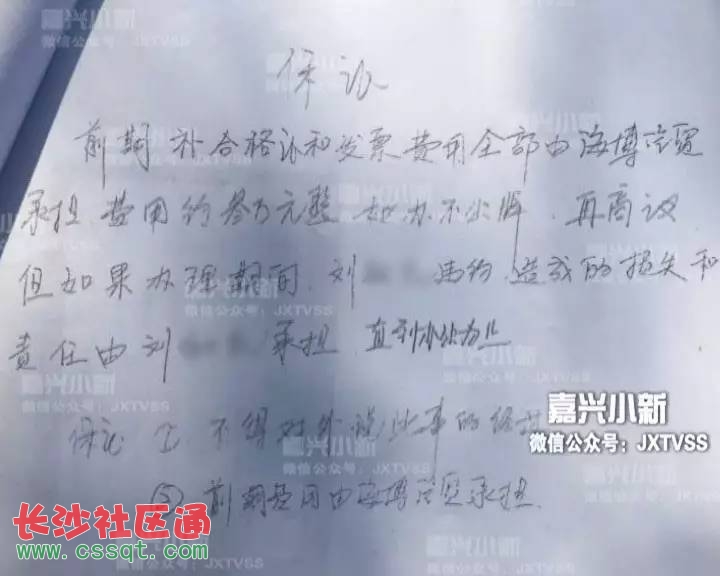 保证
前期补合格证和发票费用全部由海博汽贸
承担.费用约叁万元整 如办不出牌.再商议
但如果办理期间.刘 违约 造成的损失和
责任由刘 承担.直到办好为止
保证 ①.不得对外说此事的经过
②前期费用由海博汽贸承担.
嘉兴小新
微信公众号：JXTVSS
长沙社区通
www.cssqt.com